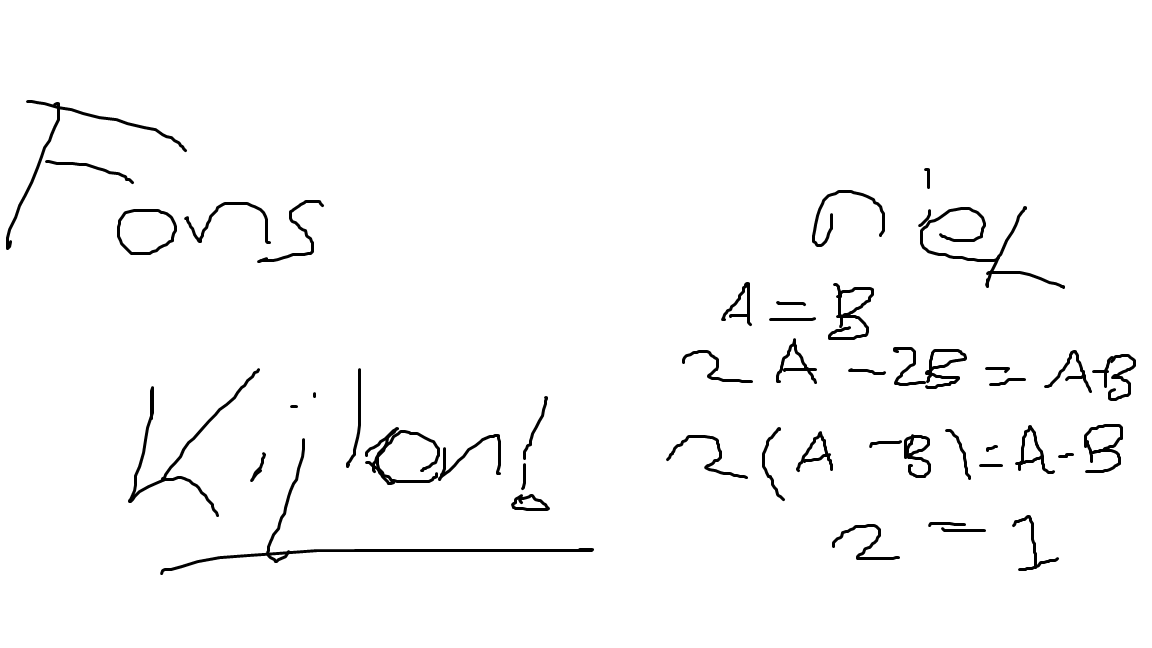 Fons
Kijkon!
A = B
2A - 2B = A-B
2(A - B) = A-B
2 = 1